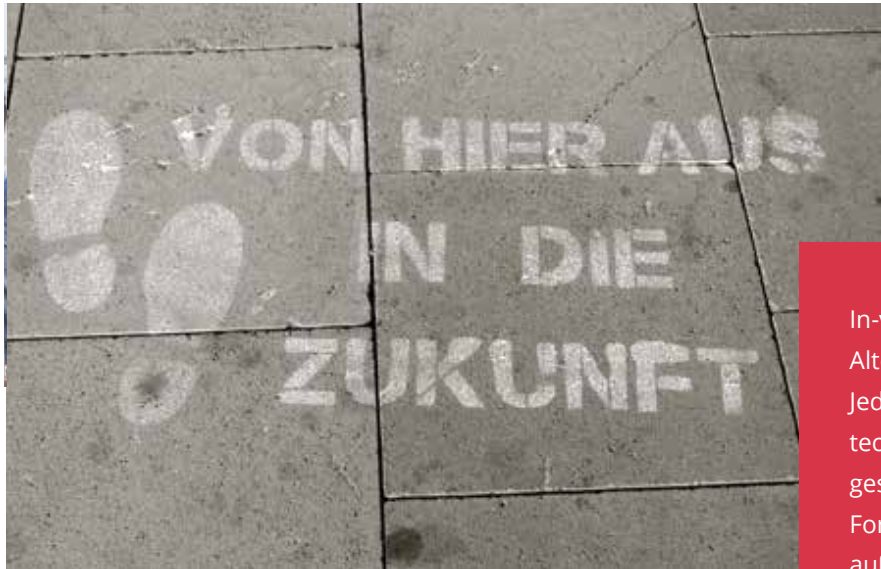 VON HIER AUS
IN DIE
ZUKUNFT
In-v
Alt
Jed
tec
ges
For